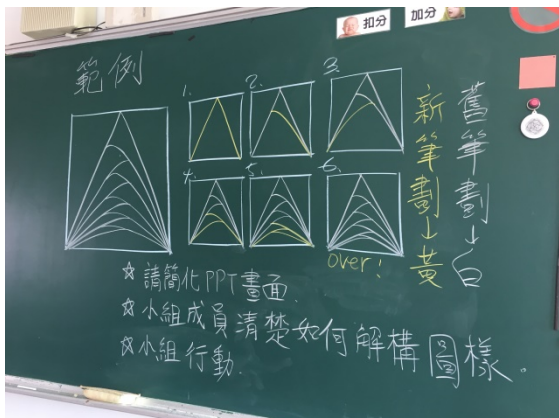 扣分
加分
範例
1.
2.
3.
4.
5.
6.
over!
舊筆劃→白
新筆劃→黃
☆請簡化PPT畫面.
☆小組成員清楚如何解構圖樣。
☆小組行動.